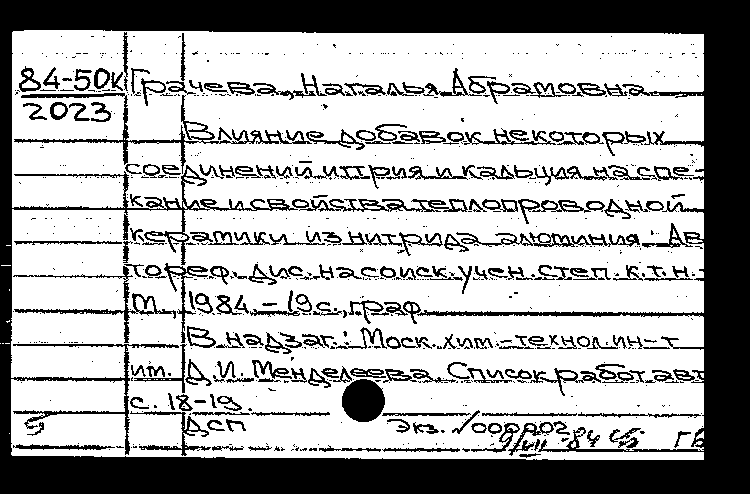 84-50к Грачева, Наталья Абрамовна
2023
Влияние добавок некоторых
соединений иттрия и кальция на спе-
кание и свойства теплопроводной
керамики из нитрида алюминия: Ав
тореф. дис. на соиск. учен. степ. к.т.н.-
М., 1984. - 19 с., граф.
В надзаг.: Моск. хим.-технол. ин-т
им. Д.И. Менделеева. Список работ авт
с. 18-19.
ДСП Экз. √000002
9/VII-84 ГБ